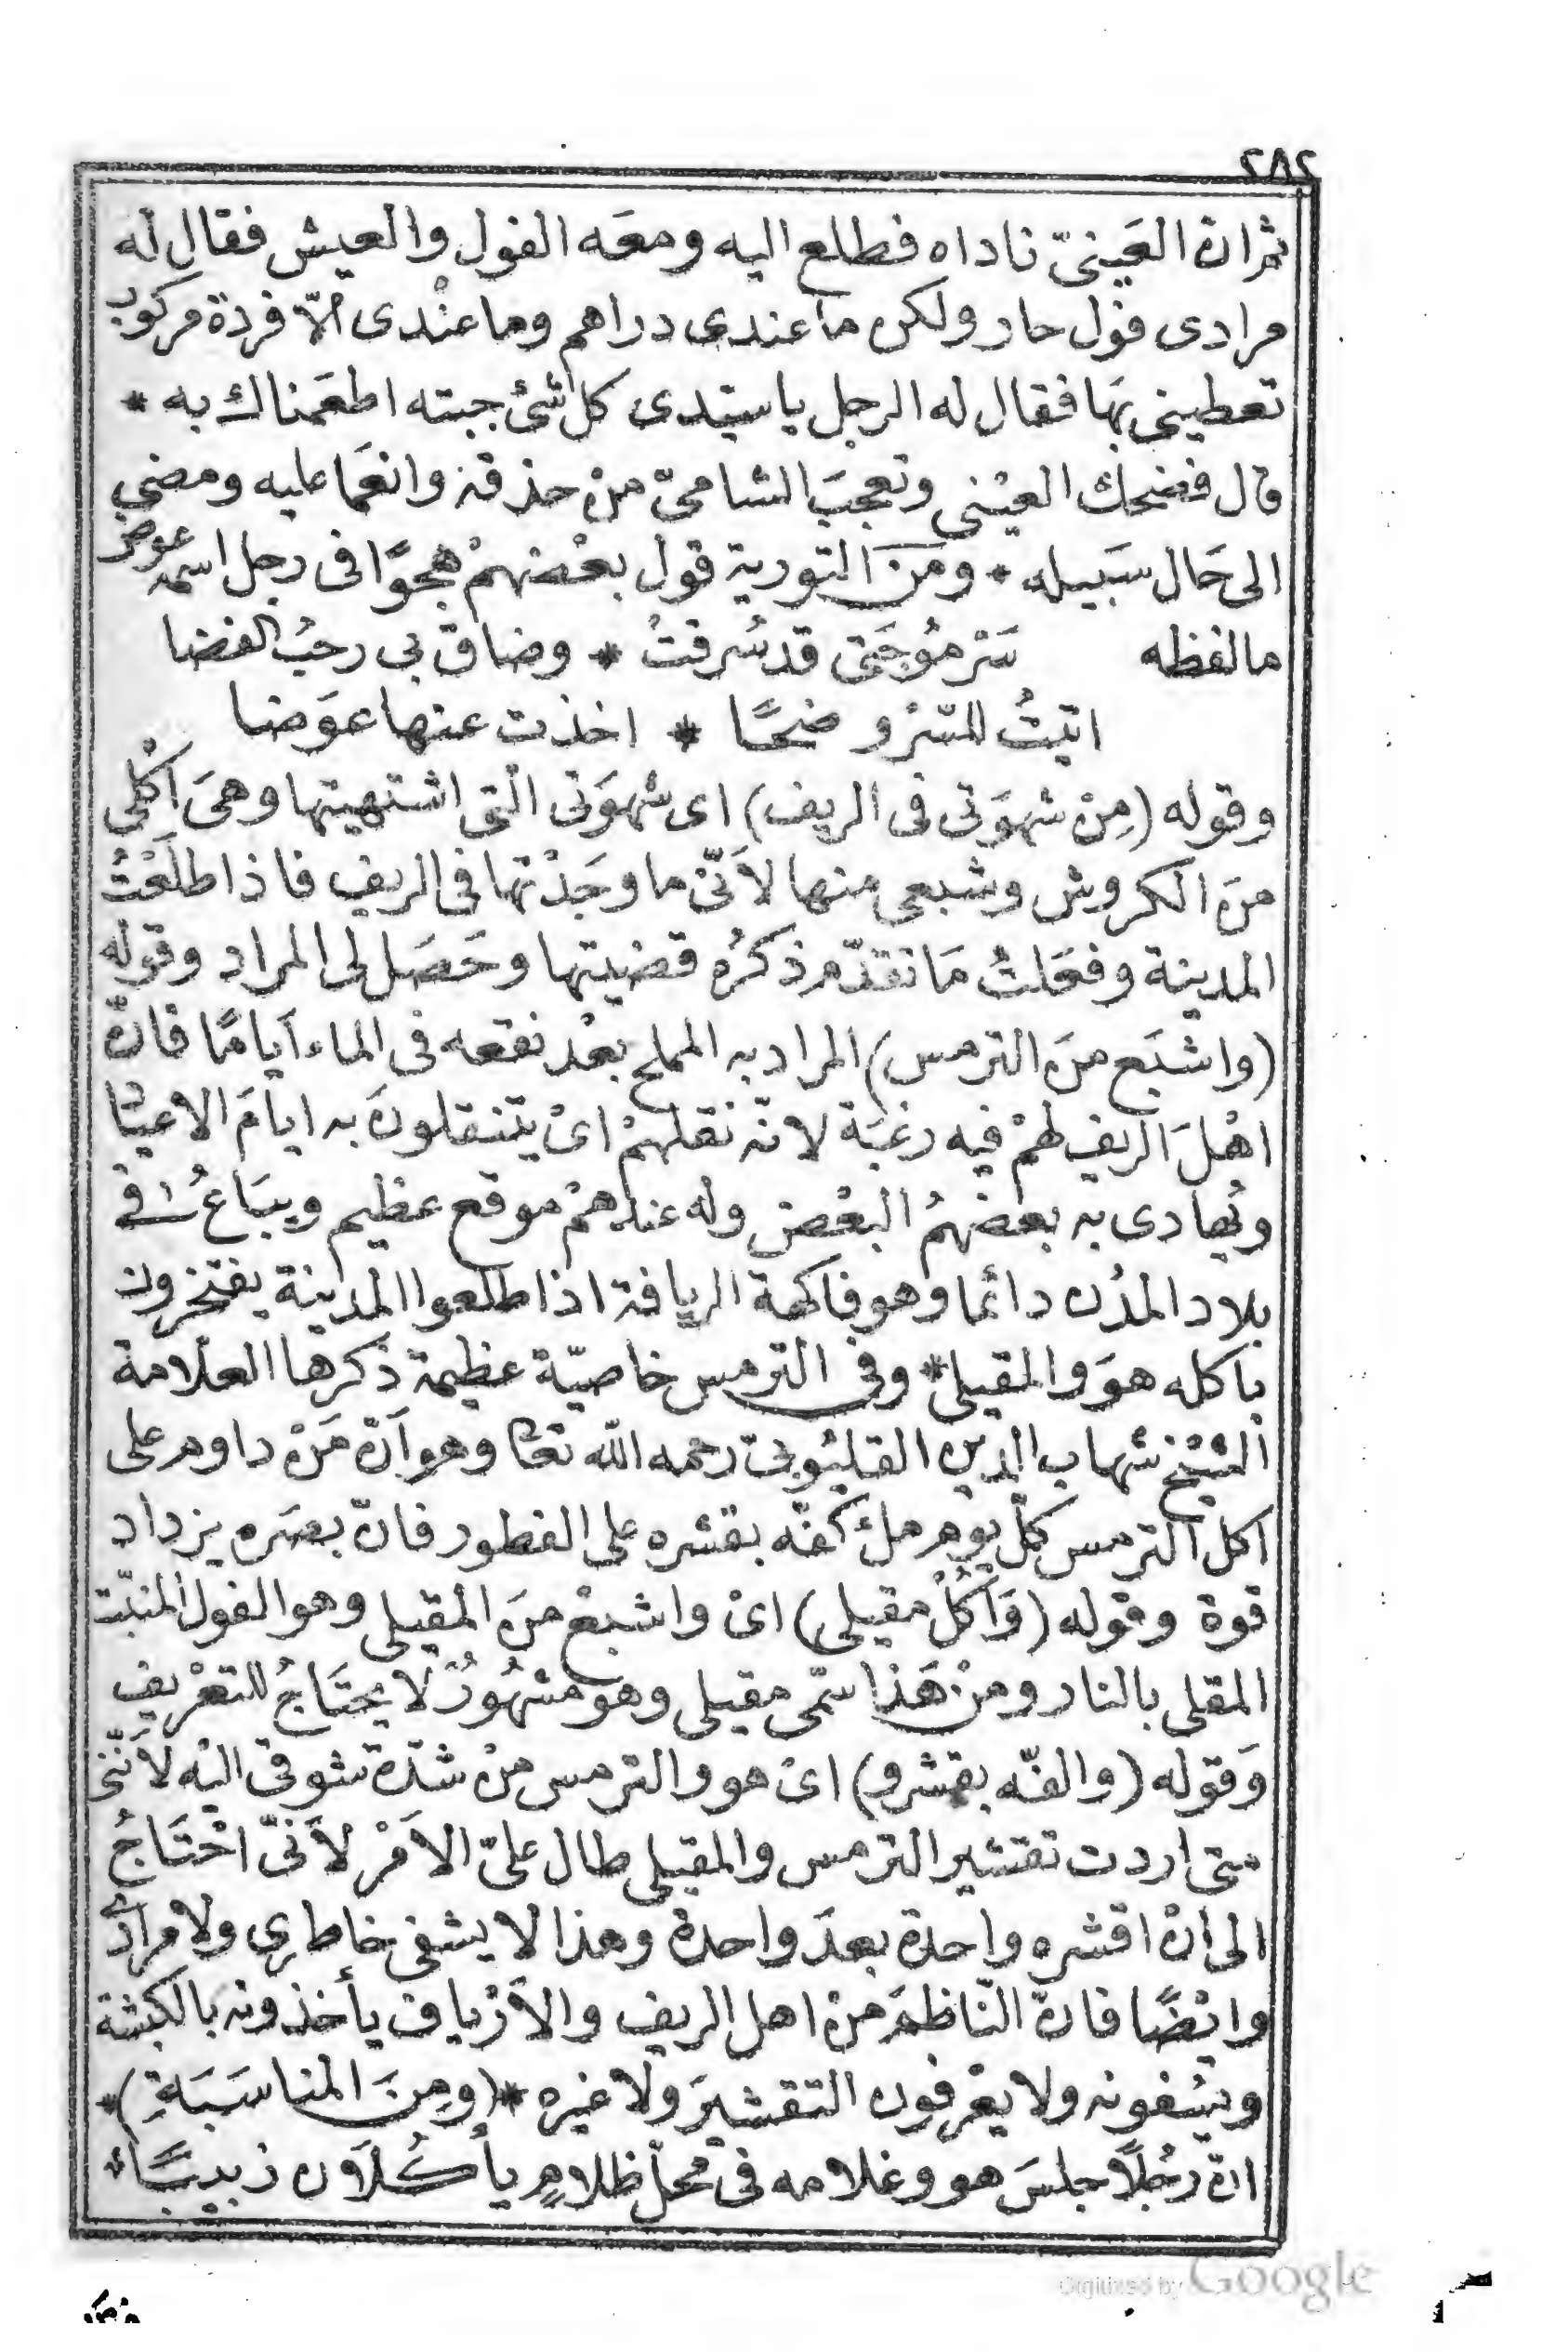 ٢٨٢
ثم ان العَينىّ ناداه فطلع اليه ومعَه الفول والعيش فقال له
مرادى فول حار ولكن ما عندى دراهم وما عنْدى الّا فردة مركوب
تعطينى بهَا فقال له الرجل يا سيّدى كل شئ جبته اطعَمناك به *
قال فضحك العيْنى وتعجبَ الشامىّ منْ حذقه وانعَما عليه ومضى
الى حَال سَبيله * ومَنَ التورية قول بعْضهمْ هجوًا فى رجل اسمه عوض
ما لفظه سَرْمُوجَتى قد سُرقتْ * وضاق بى رحبُ الفضا
اتيتُ للسّرْو ضحًا * اخذت عنها عوَضا
وقوله (مِنْ شهوَتى فى الريف) اى شهوَتى الّتى اشتهيتها وهىَ اكْلى
منَ الكروش وشبعى منها لاَنّى ما وجَدْتها فى الريف فاذا طلَعْتُ
المدينة وفعَلتُ مَا تقدّم ذكرُه قضيتها وحَصَل لى المراد وقوله
(واشبَع منَ الترمس) المراد به المملح بعْد نقعه فى الماء اَيامًا فانّ
اهْلَ الريف لهمْ فيه رغبَة لانّه نقلهمْ اىْ يتنقلونَ به ايامَ الاعيَاد
ويُهادى به بعضهمُ البعْض وله عندهمْ موقع عظيم ويبَاعُ فى
بلاد المدُن دائما وهو فاكهة الريافة اذا طلعوا المدينة يفتخرون
باكله هوَ والمقيلى * وفى الترمس خاصيّة عظيمة ذكرها العلّامة
الشيْخ شهاب الدين القليُوبىّ رحمه اللّه تعا وهو اَنّ مَنْ داوم على
اكل الترمس كلّ يوم ملئ كفّه بقشره على الفطور فانّ بصَره يزداد
قوة وقوله (وَآكُلْ مقيلى) اىْ واشبعْ منَ المْقيلى وهو الفول المنبّت
المقلى بالنار ومنْ هَذا سمّى مقيلى وهو مشهُورُ لا يحتَاجُ للتعْريف
وَقوله (والفّه بقشرو) اىْ هو والترمس منْ شدّة شوقى اليْه لاَنّنى
متى اردت تقشير الترمس والمقيلى طال علىّ الاَمْر لاَنىّ احْتَاجُ
الى انْ اقشره واحدة بعدَ واحدة وهذا لا يشفى خاطرى ولا مرادى
وايْضًا فانّ النّاظمَ منْ اهل الريف والاَرْياف يأخذونه بالكبشة
ويسُفونه ولا يعْرفون التقشيرَ ولا غيره *(ومِنَ المناسَبَةِ)*
انّ رَجُلًا جلسَ هو وغلامه فى محَلّ ظلامٍ يأكُلاَن زبيبًا *
Digitized by Google